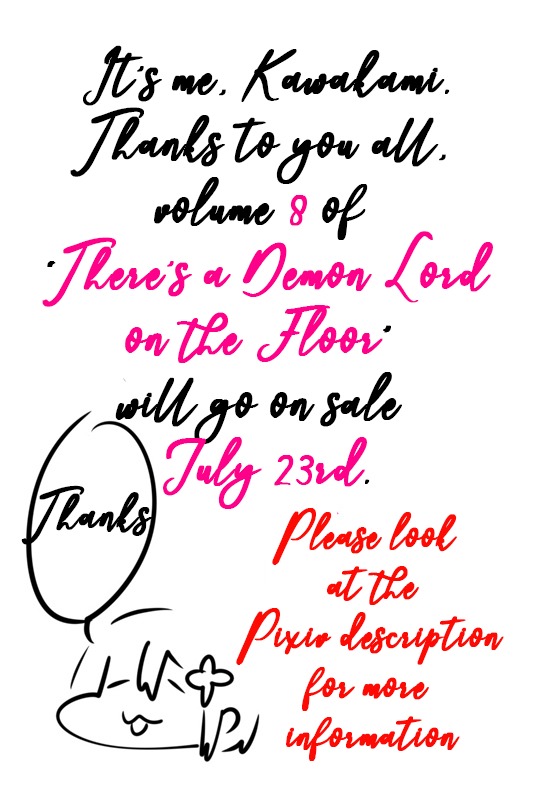 It's me, Kawakami.
Thanks to you all,
volume 8 of
"There's a Demon Lord
on the Floor"
will go on sale
July 23rd.
Thanks
Please look
at the
Pixiv description
for more
information